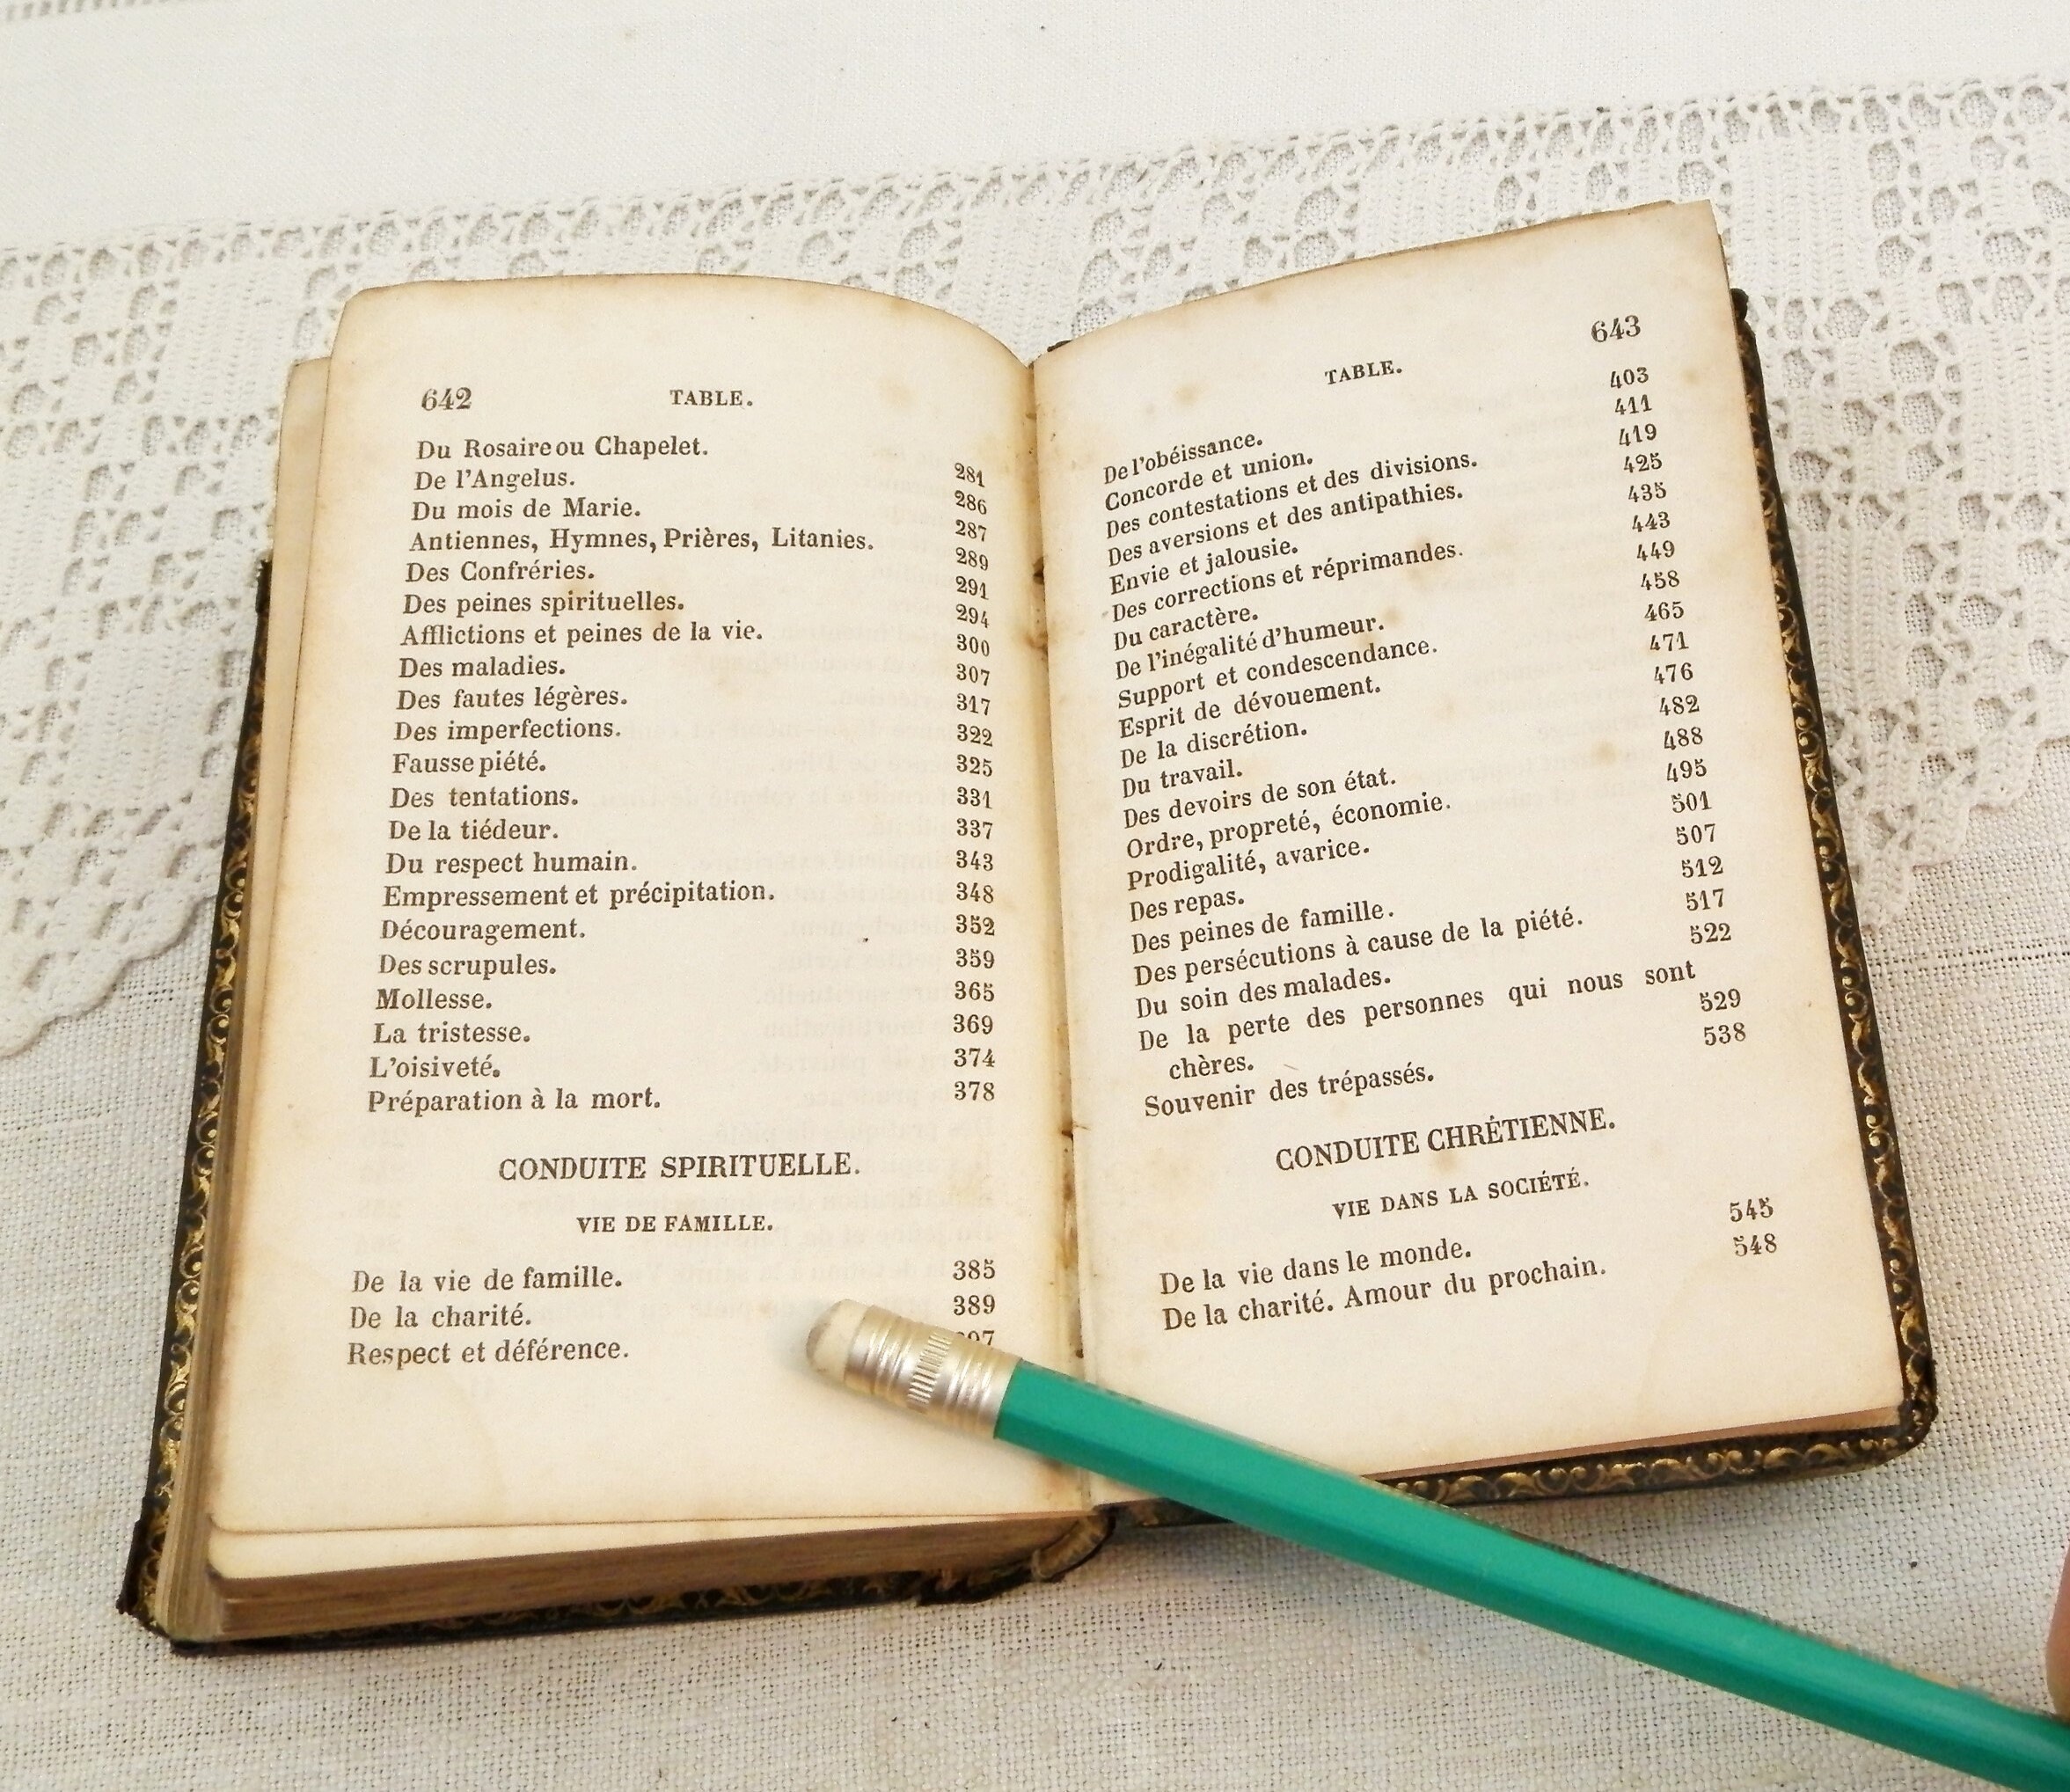 642 TABLE.
Du Rosaire ou Chapelet. 281
De l'Angelus. 286
Du mois de Marie. 287
Antiennes, Hymnes, Prières, Litanies. 289
Des Confréries. 291
Des peines spirituelles. 294
Afflictions et peines de la vie. 300
Des maladies. 307
Des fautes légères. 317
Des imperfections. 322
Fausse piété. 325
Des tentations. 331
De la tiédeur. 337
Du respect humain. 343
Empressement et précipitation. 348
Découragement. 352
Des scrupules. 359
Mollesse. 365
La tristesse. 369
L'oisiveté. 374
Préparation à la mort. 378
CONDUITE SPIRITUELLE.
VIE DE FAMILLE.
De la vie de famille. 385
De la charité. 389
Respect et déférence.
TABLE. 643
De l'obéissance. 403
Concorde et union. 411
Des contestations et des divisions. 419
Des aversions et des antipathies. 425
Envie et jalousie. 435
Des corrections et réprimandes. 443
Du caractère. 449
De l'inégalité d'humeur. 458
Support et condescendance. 465
Esprit de dévouement. 471
De la discrétion. 476
Du travail. 482
Des devoirs de son état. 488
Ordre, propreté, économie. 495
Prodigalité, avarice. 501
Des repas. 507
Des peines de famille. 512
Des persécutions à cause de la piété. 517
Du soin des malades. 522
De la perte des personnes qui nous sont
chères. 529
Souvenir des trépassés. 538
CONDUITE CHRÉTIENNE.
VIE DANS LA SOCIÉTÉ.
De la vie dans le monde. 545
De la charité. Amour du prochain. 548